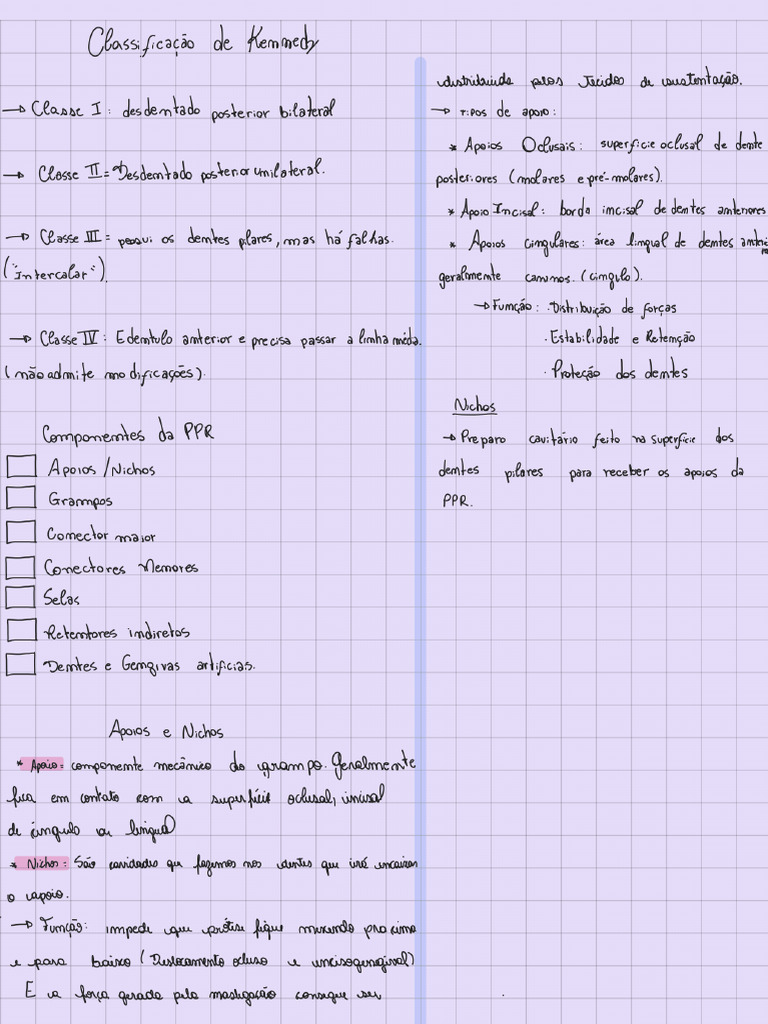 Classificação de Kennedy
→ Classe I: desdentado posterior bilateral
→ Classe II = Desdentado posterior unilateral.
→ Classe III = possui os dentes pilares, mas há falhas.
("Intercalar").
→ Classe IV: Edentulo anterior e precisa passar a linha média.
(não admite modificações).
Componentes da PPR
Apoios/Nichos
Grampos
Conector maior
Conectores Menores
Selas
Retentores indiretos
Dentes e Gengivas artificias.
Apoios e Nichos
* Apoio: componente mecânico do grampo. Geralmente
fica em contato com a superfície oclusal, incisal
de cíngulo ou lingual
* Nichos: São cavidades que fazemos nos dentes que irá encaixar
o apoio.
→ Função: impede que prótese fique mexendo pra cima
e para baixo (Deslocamento ocluso e incisogengival)
E a força gerada pela mastigação consegue ser
distribuida pelos Tecidos de sustentação.
→ Tipos de apoio:
* Apoios Oclusais: superfície oclusal de dente
posteriores (molares e pré-molares).
* Apoio Incisal: borda incisal de dentes anteriores
* Apoios cingulares: área lingual de dentes
geralmente caninos. (cingulo).
→ Função: · Distribuição de forças
· Estabilidade e Retenção
· Proteção dos dentes
Nichos
→ Preparo cavitário feito na superfície dos
dentes pilares para receber os apoios da
PPR.